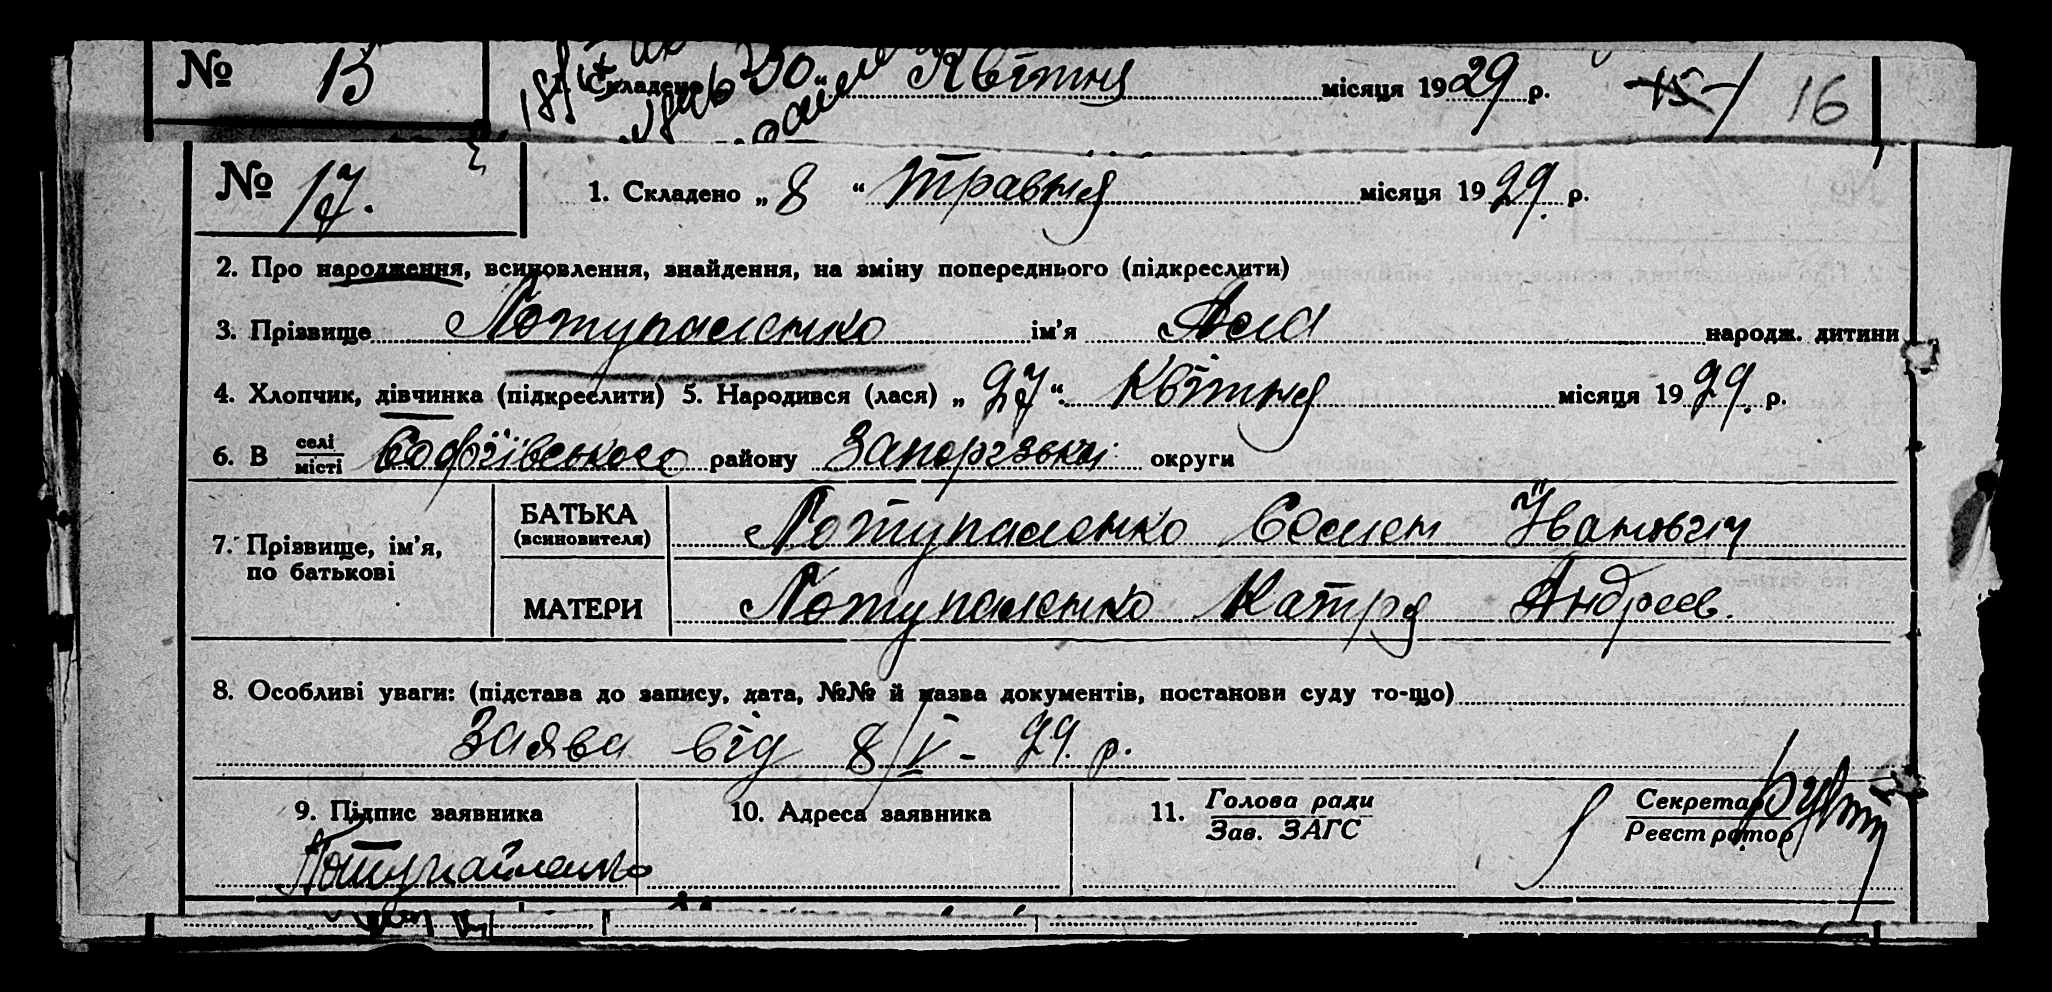 № 15 1. Складено „30“ Квітня місяця 1929 р. 15 16
№ 17. 1. Складено „8“ травня місяця 1929. р.
2. Про народження, всиновлення, знайдення, на зміну попереднього (підкреслити)
3. Прізвище Потупаленко ім'я Ася народж. дитини
4. Хлопчик, дівчинка (підкреслити) 5. Народився (лася) „27“ Квітня місяця 1929. р.
6. В селі/місті Софіївського району Запорізька округи
7. Прізвище, ім'я, по батькові
БАТЬКА (всиновителя) Потупаленко Семен Іванович
МАТЕРИ Потупаленко Катря Андреев.
8. Особливі уваги: (підстава до запису, дата, №№ й назва документів, постанови суду то-що)
Заява від 8/V - 29. р.
9. Підпис заявника 10. Адреса заявника 11. Голова ради/Зав. ЗАГС Секретар/Реєстратор